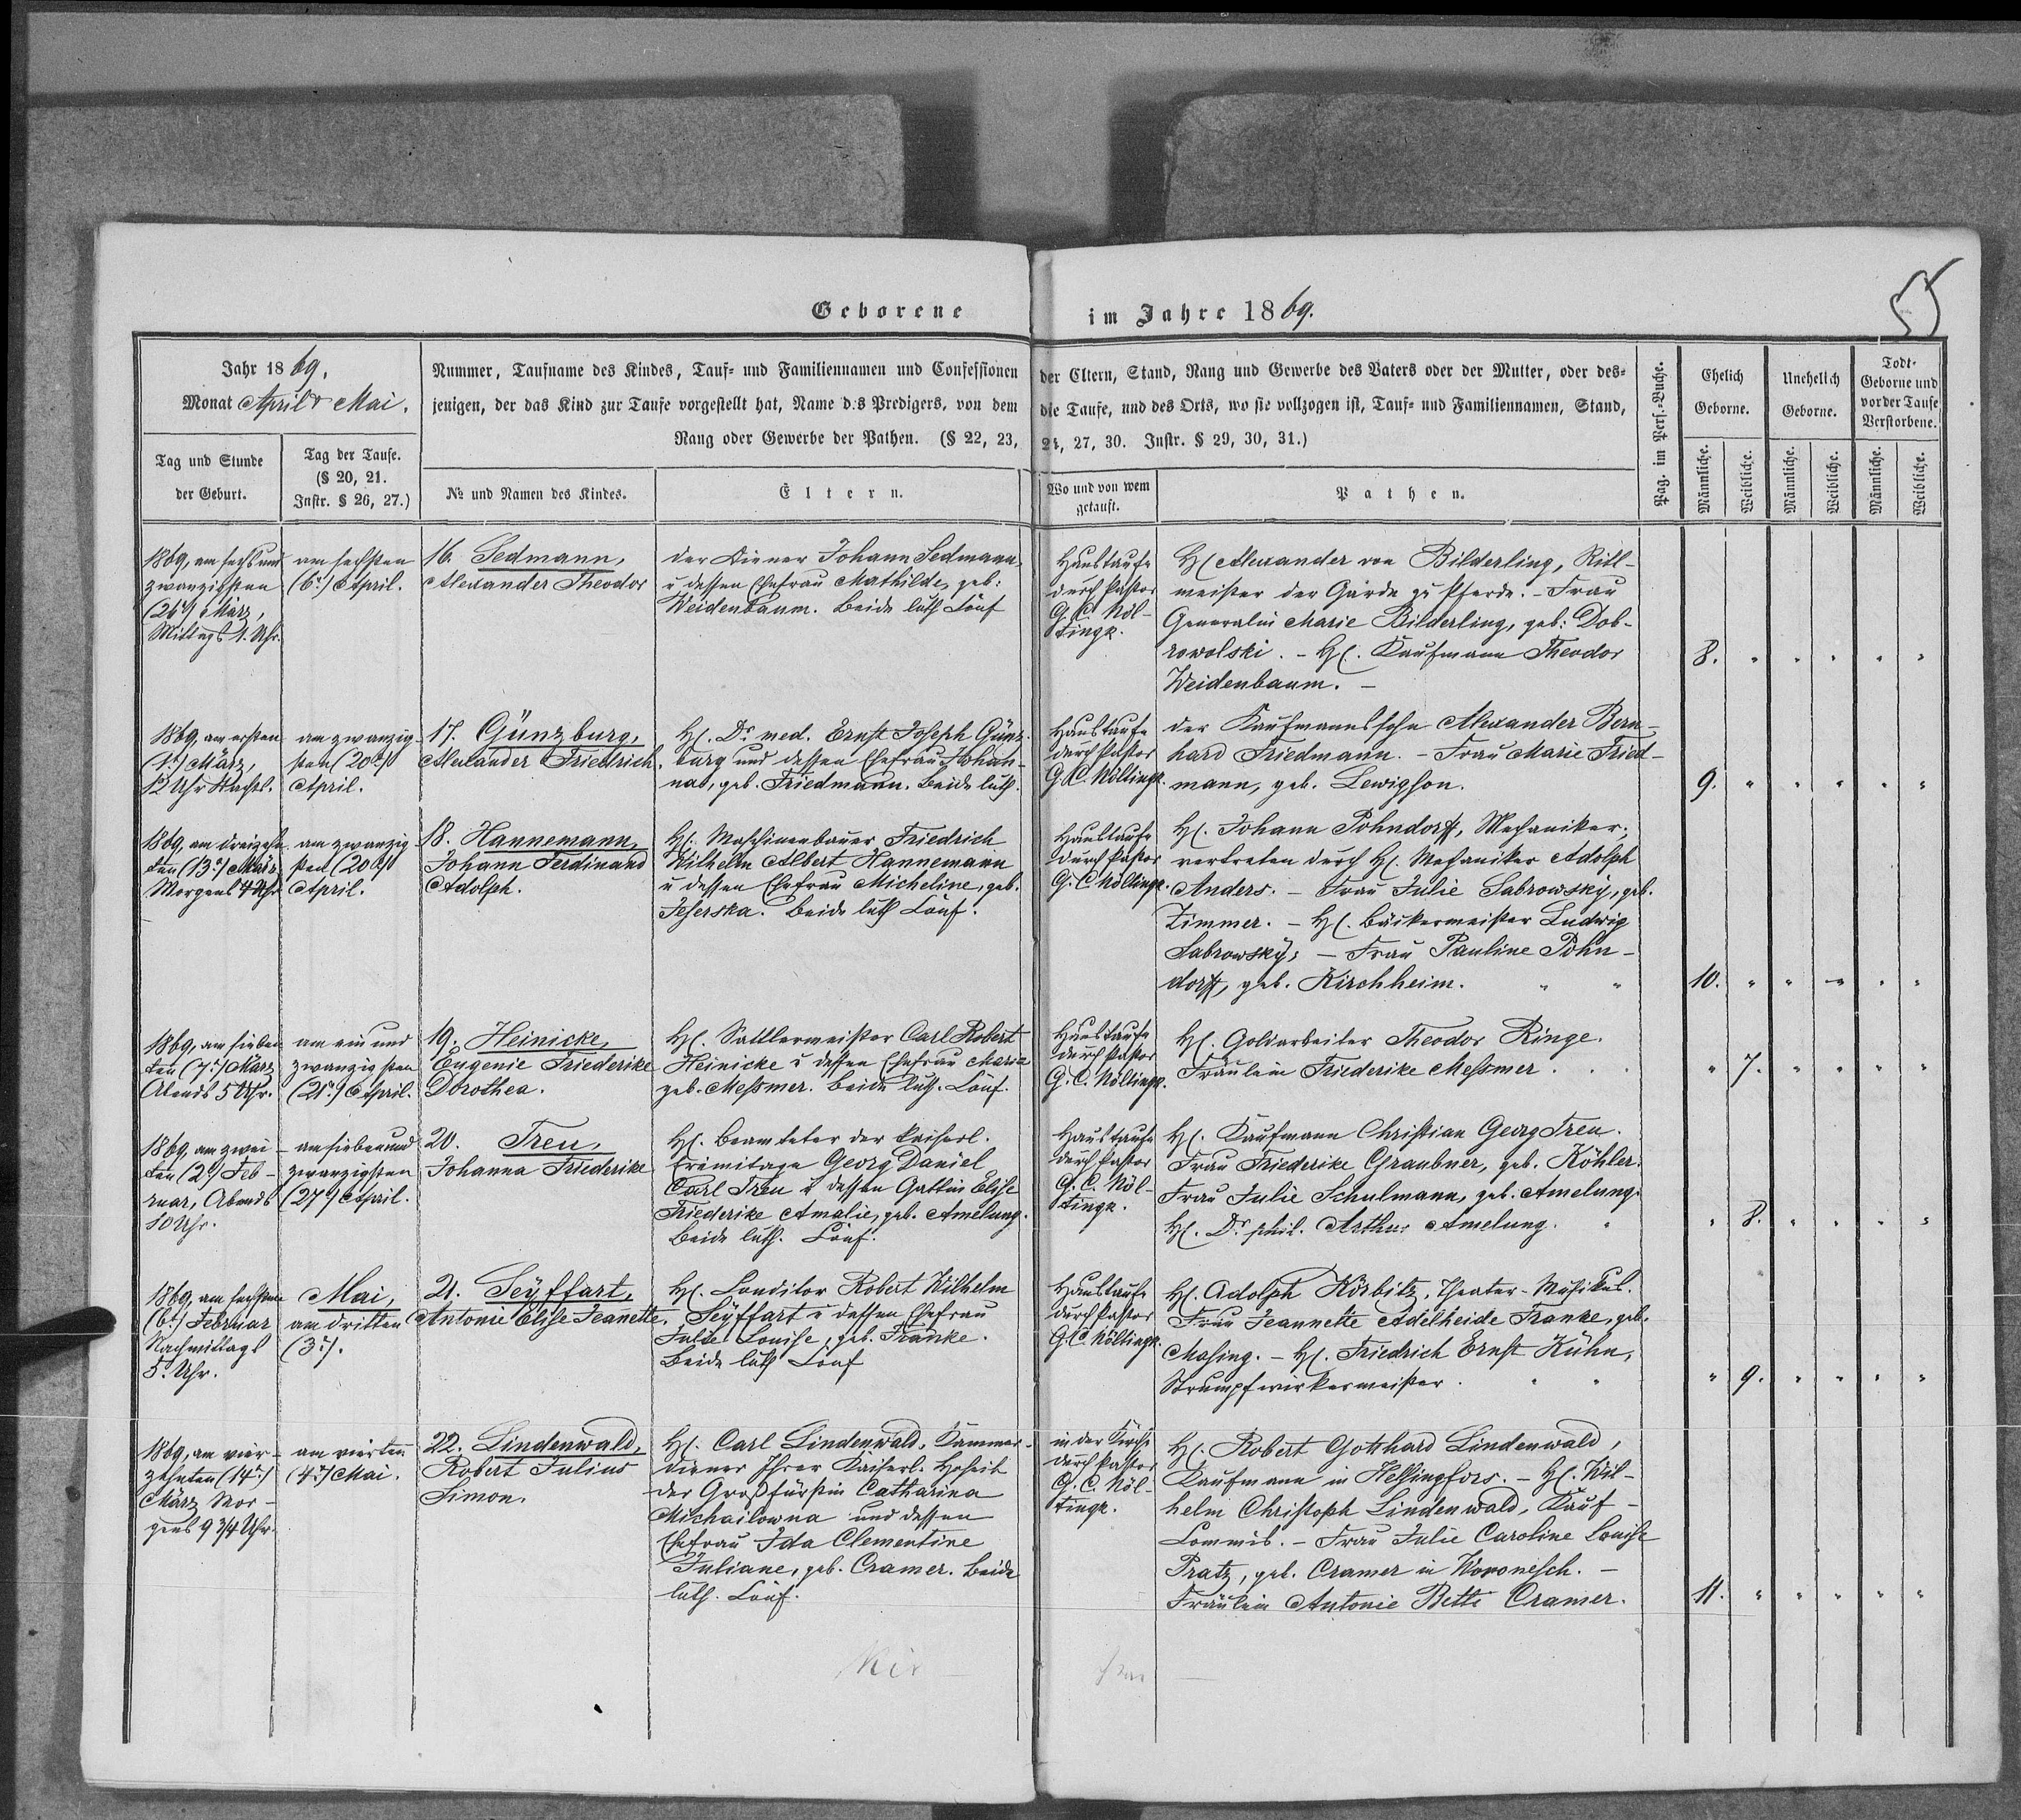 Geborene im Jahre 1869.
55
Jahr 1869.
Monat April & Mai.
Tag und Stunde
der Geburt.
Tag der Taufe.
(§ 20, 21.
Instr. § 26, 27.)
Nummer, Taufname des Kindes, Tauf- und Familiennamen und Confessionen der Eltern, Stand, Rang und Gewerbe des Vaters oder der Mutter, oder des-
jenigen, der das Kind zur Taufe vorgestellt hat, Name d:s Predigers, von dem die Taufe, und des Orts, wo sie vollzogen ist, Tauf- und Familiennamen, Stand,
Rang oder Gewerbe der Pathen. (§ 22, 23, 24, 27, 30. Instr. § 29, 30, 31.)
№ und Namen des Kindes.
Eltern.
Wo und von wem
getauft.
Pathen.
Pag. im Pers.-Buche.
Ehelich
Geborne.
Unehelich
Geborne.
Todt-
Geborne und
vor der Taufe
Verstorbene.
Männliche.
Weibliche.
Männliche.
Weibliche.
Männliche.
Weibliche.
1869, am sechs und
zwanzigsten
(26.) März,
Mittags 1. Uhr.
am sechsten
(6.) April.
16. Sedmann,
Alexander Theodor
Der Diener Johann Sedmann
u dessen Ehefrau Mathilde, geb:
Weidenbaum. Beide luth Conf
Haustaufe
durch Pastor
G. C. Nöl-
tingk.
H. Alexander von Bilderling, Ritt-
meister der Garde zu Pferde. - Frau
Generalin Marie Bilderling, geb: Dob-
rowolski. - H. Kaufmann Theodor
Weidenbaum. -
8. " " " " "
1869, am ersten
(1.) März,
12 Uhr Nachts.
am zwanzig-
sten (20.)
April.
17. Günzburg,
Alexander Friedrich.
H. Dr. med. Ernst Joseph Günz-
burg und dessen Ehefrau Johan-
na, geb. Friedmann. Beide luth.
Haustaufe
durch Pastor
G. C. Nöltingk.
Der Kaufmannssohn Alexander Bern-
hard Friedmann. - Frau Marie Fried-
mann, geb. Lewigson.
9. " " " " "
1869, am dreizehn-
ten (13.) März
Morgens 4 Uhr
am zwanzig
sten (20.)
April.
18. Hannemann,
Johann Ferdinand
Adolph.
H. Maschinenbauer Friedrich
Wilhelm Albert Hannemann
u dessen Ehefrau Micheline, geb.
Jeserska. Beide luth Conf.
Haustaufe
durch Pastor
G. C. Nöltingk.
H. Johann Pohndorff, Mechaniker,
vertreten durch H. Mechaniker Adolph
Anders. - Frau Julie Sabrowsky, geb.
Zimmer. - H. Bäckermeister Ludwig
Sabrowsky; - Frau Pauline Pohn-
dorff, geb. Kirchheim. " "
10. " " " " "
1869, am sieben
ten (7.) März
Abends 5 Uhr.
am ein und
zwanzigsten
(21.) April.
19. Heinicke,
Eugenie Friederike
Dorothea.
H. Sattlermeister Carl Robert
Heinicke u dessen Ehefrau Maria
geb. Messmer. Beide luth. Conf.
Haustaufe
durch Pastor
G. C. Nöltingk.
H. Goldarbeiter Theodor Ringe.
Fräulein Friederike Messmer.
" 7. " " " "
1869, am zwei-
ten (2.) Feb-
ruar, Abends
10 Uhr.
am sieben und
zwanzigsten
(27.) April.
20. Treu,
Johanna Friederike
H. Beamteter der Kaiserl.
Erimitage Georg Daniel
Carl Treu u dessen Gattin Elise
Friederike Amalie, geb. Amelung.
Beide luth. Conf.
Haustaufe
durch Pastor
G. C. Nöl-
tingk.
H. Kaufmann Christian Georg Treu.
Frau Friederike Graubner, geb. Köhler.
Frau Julie Schulmann, geb. Amelung.
H. Dr. phil. Arthur Amelung. "
" 8. " " " "
1869, am sechsten
(6.) Februar
Nachmittags
5. Uhr.
Mai,
am dritten
(3.).
21. Seyffart,
Antonie Elise Jeanette.
H. Conditor Robert Wilhelm
Seyffart u dessen Ehefrau
Julie Louise, geb. Franke.
Beide luth Conf
Haustaufe
durch Pastor
G. C. Nöltingk.
H. Adolph Körbitz, Theater-Musikus.
Frau Jeannette Adelheide Franke, geb.
Masing. - H. Friedrich Ernst Kühn,
Strumpfwirkermeister. " "
" 9. " " " "
1869, am vier-
zehnten (14.)
März Mor-
gens 9 3/4 Uhr.
am vierten
(4.) Mai.
22. Lindenwald,
Robert Julius
Simon.
H. Carl Lindenwald, Kammer-
diener Ihrer Kaiserl. Hoheit
der Großfürstin Catharina
Michailowna und dessen
Ehefrau Ida Clementine
Juliane, geb. Cramer. Beide
luth. Conf.
in der Kirche
durch Pastor
G. C. Nöl-
tingk.
H. Robert Gotthard Lindenwald,
Kaufmann in Helsingfors. - H. Wil-
helm Christoph Lindenwald, Kauf-
Commis. - Frau Julie Caroline Louise
Pratz, geb. Cramer in Woronesch. -
Fräulein Antonie Bette Cramer.
11. " " " " "